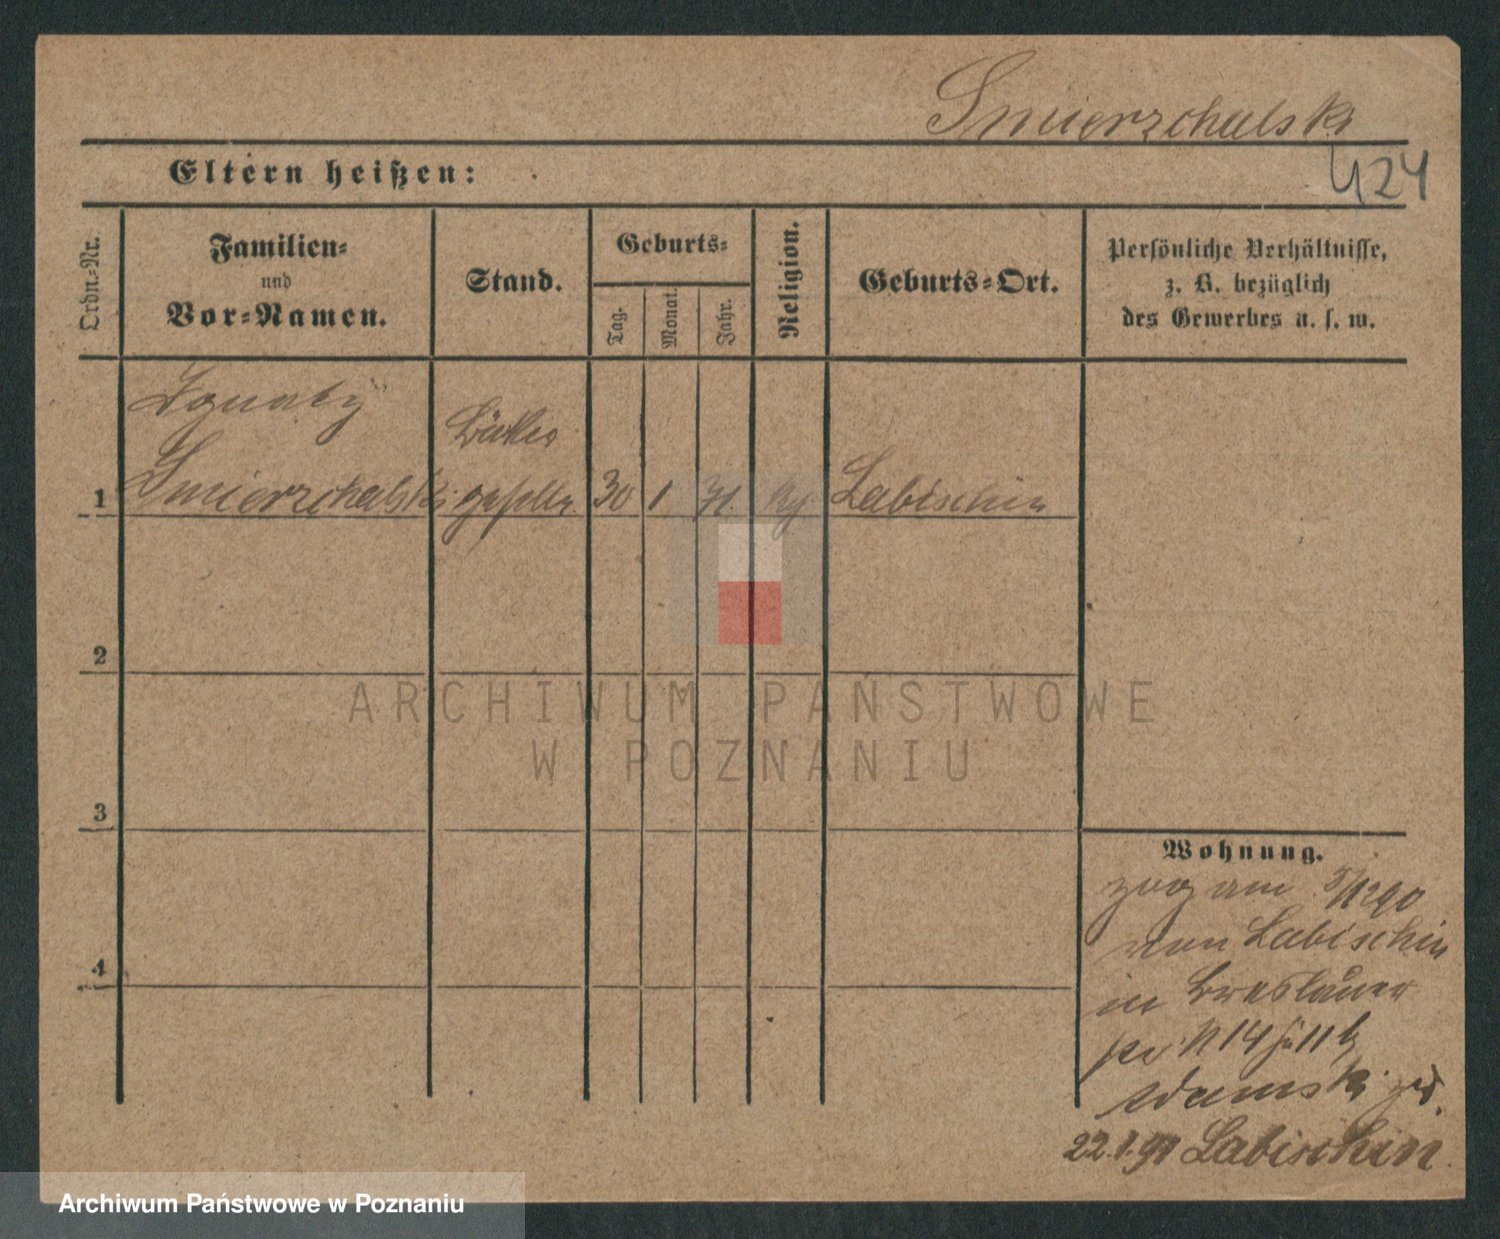 Smierzchalski
424
Eltern heißen:
Ordn.-Nr.
Familien-
und
Vor-Namen.
Stand.
Geburts-
Tag.
Monat.
Jahr.
Religion.
Geburts-Ort.
Persönliche Verhältnisse,
z. B. bezüglich
des Gewerbes u. s. w.
Ignatz
Smierzchalski
Bäcker
geselle
1
30 1 71. Labischin
2
3
4
Wohnung.
zog am 5/12 90
von Labischin
in Breslauer
14
Adamski
22.1.91 Labischin
ARCHIWUM PAŃSTWOWE
W POZNANIU
Archiwum Państwowe w Poznaniu